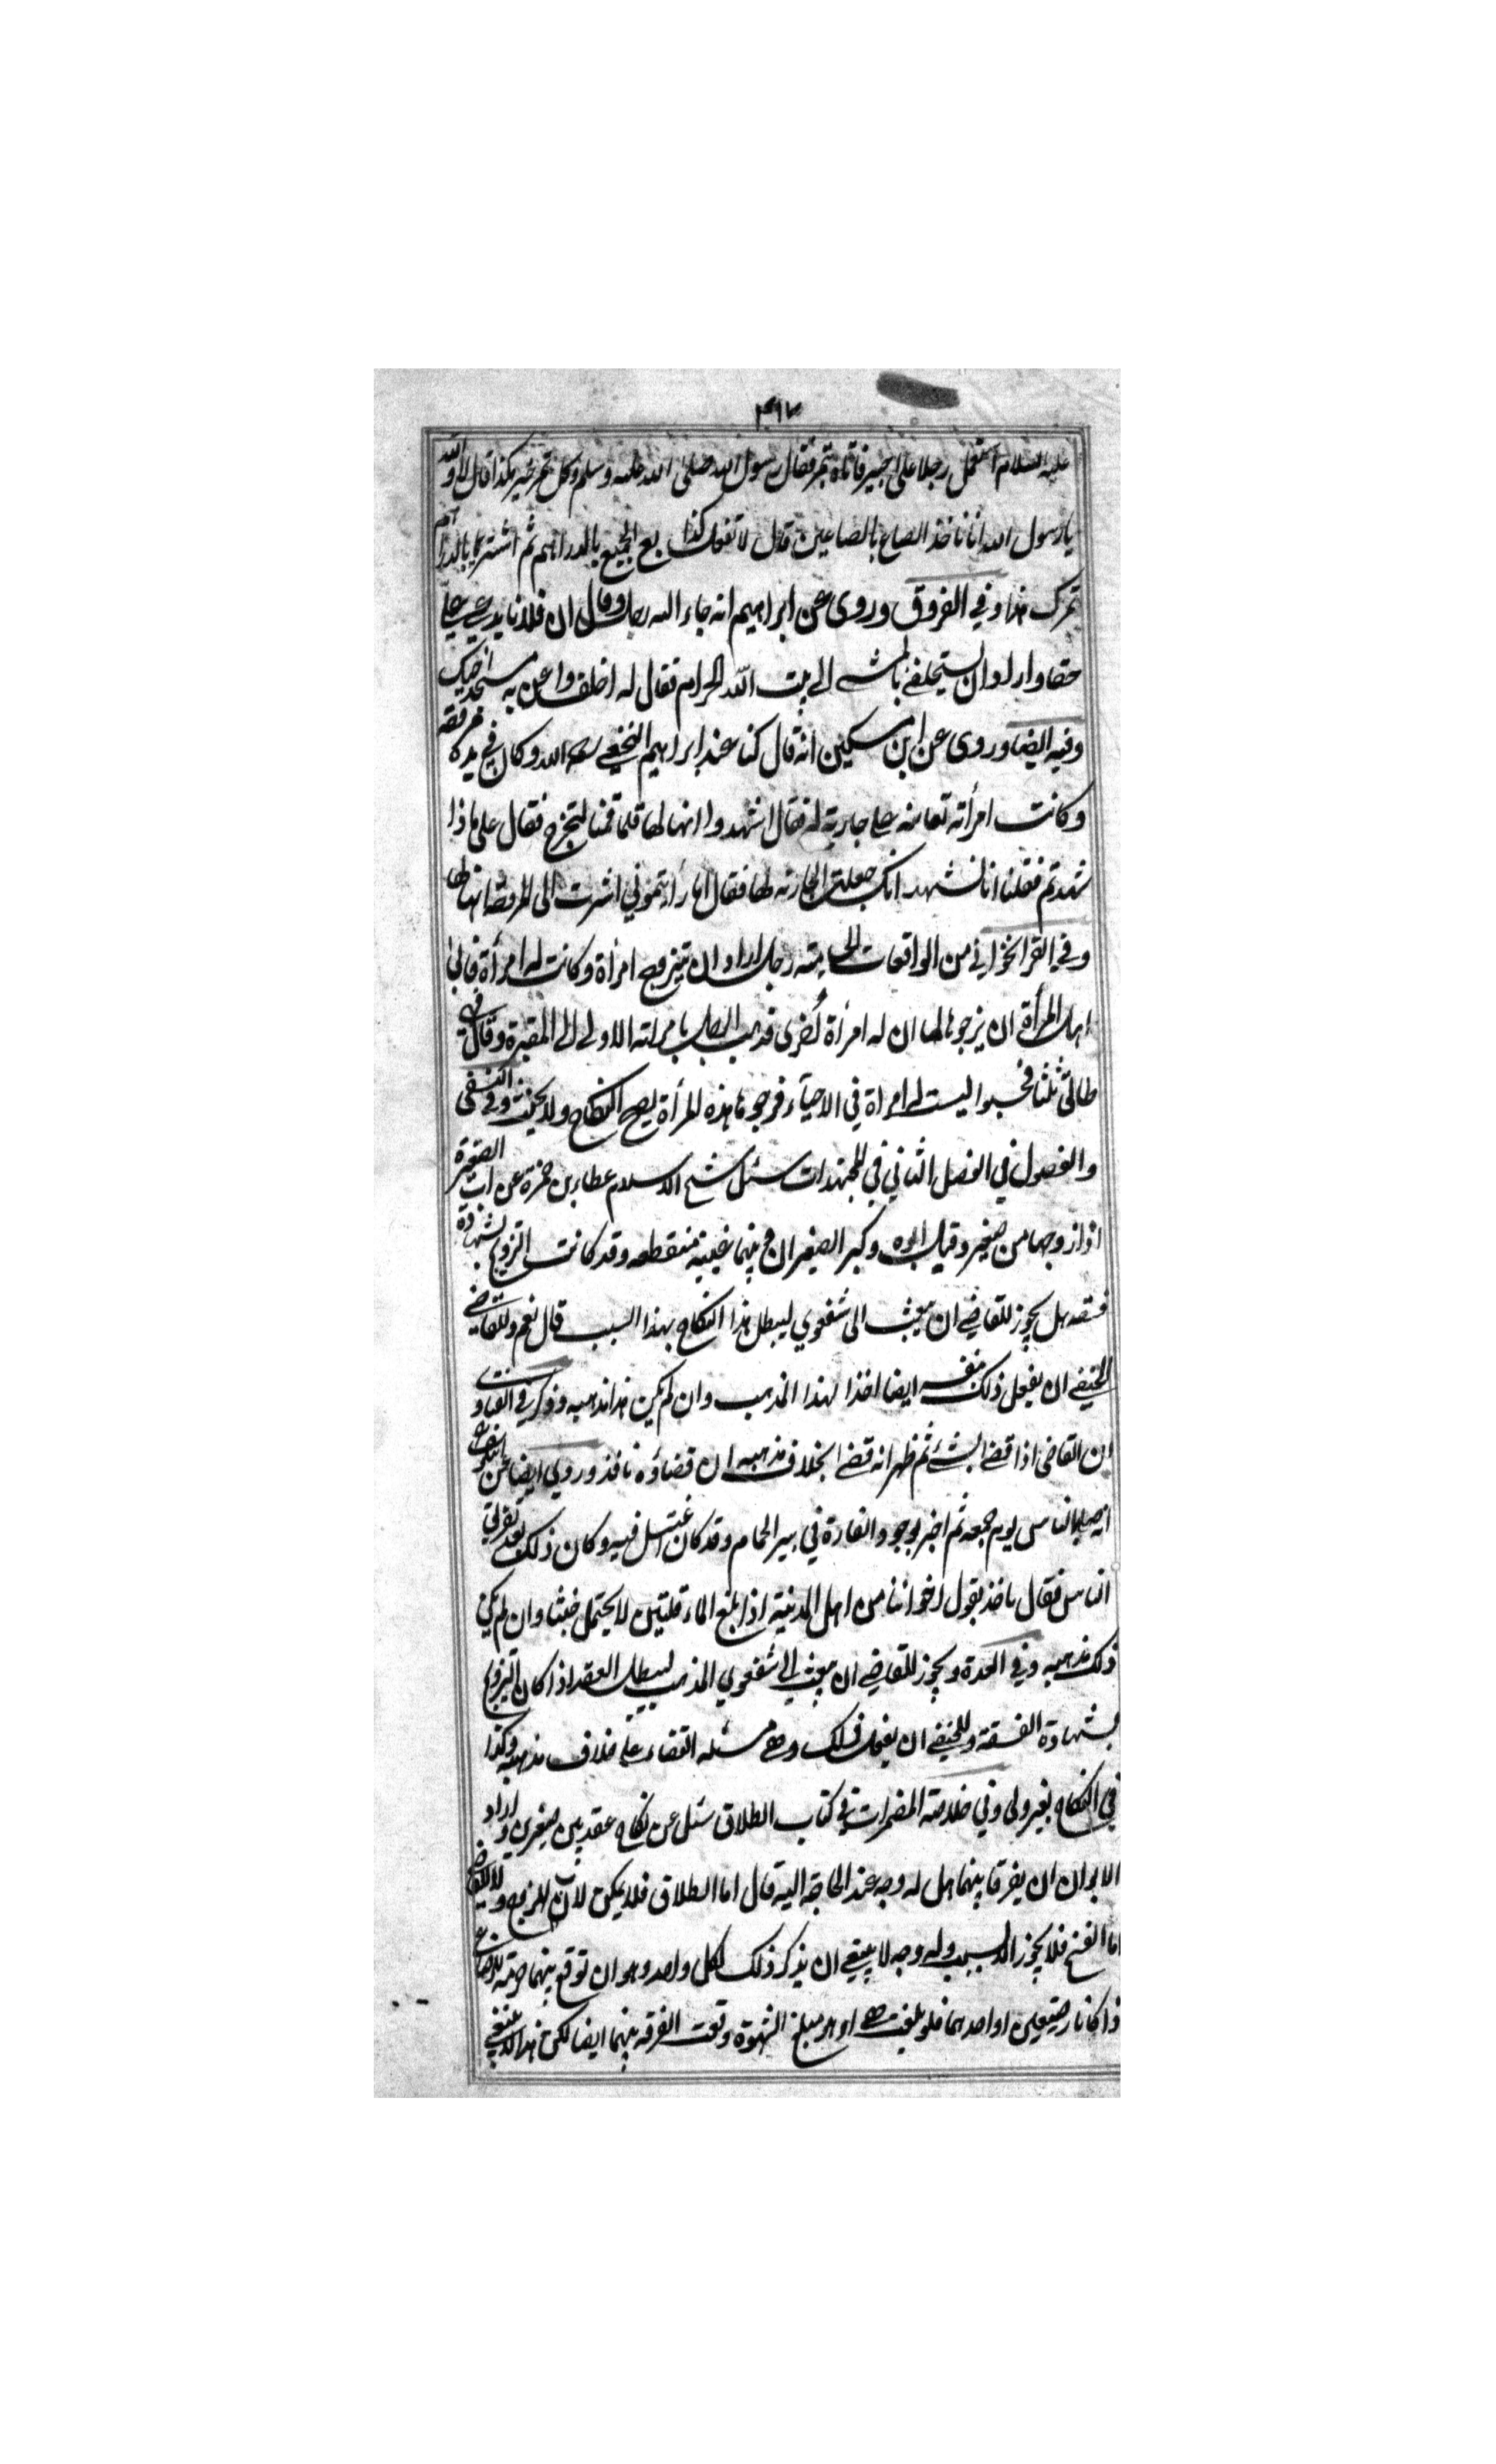 ٣٩٢
عليه السلام استعمل رجلا على خيبر فاتاه بتمر فقال رسول الله صلى الله عليه وسلم وكل تمر خيبر هكذا قال لا والله
يا رسول الله انا ناخذ الصاع بالصاعين قال لا تفعل كذا بع الجميع بالدراهم ثم اشتر بالدراهم
تمرك هذا وفي الفروق وروى عن ابراهيم انه جاء اليه رجل وقال ان فلانا يدعي علي
حقا واراد ان يستحلفني بالمشي الى بيت الله الحرام فقال له احلف واعن به مسجد حيك
وفيه ايضا وروى عن ابن مسكين انه قال كنا عند ابراهيم النخعي رحمه الله وكان في يده مرفقه
وكانت امرأته تعاتبه على جارية له فقال اشهدوا انها لها فلما قمنا لنخرج فقال على ماذا
شهدتم فقلنا انا نشهد انك جعلت الجارية لها فقال اما رأيتموني اشرت الى المرفقة انها لها
وفي القراخواني من الواقعات رجل اراد ان يتزوج امرأة وكانت له امرأة فابى
اهل المرأة ان يزوجوها لما ان له امرأة اخرى فذهب الطالب بامراته الاولى الى المقبرة وقال
طالق ثلثا فحسبوا ليست له امراة في الاحياء فزوجوها هذه المرأة يصح النكاح ولا يحنث وفي النسفي
والفصول في الفصل الثاني في المجتهدات سئل شيخ الاسلام عطاء بن حمزة عن اب الصغيرة
اذا زوجها من صغير وقبل ابوه وكبر الصغيران وبينهما غيبة منقطعه وقد كانت التزويج بشهادة
فسقه هل يجوز للقاضي ان يبعث الى شفعوي ليبطل هذا النكاح بهذا السبب قال نعم وللقاضي
الحنفي ان يفعل ذلك بنفسه ايضا اخذا لهذا المذهب وان لم يكن هذا مذهبه وذكر في الفتاوى
ان القاضى اذا قضى بشئ ثم ظهر انه قضى بخلاف مذهبه ان قضاؤه نافذ وروي ايضا عن
انه صلى بالناس يوم جمعه ثم اخبر بوجود الفارة في بير الحمام وقد كان اغتسل فيه وكان ذلك بعد تفرق
الناس فقال ناخذ بقول اخواننا من اهل المدينة اذا بلغ الماء قلتين لا يحتمل خبثا وان لم يكن
ذلك مذهبه وفي العدة ويجوز للقاضي ان يبعث الى شفعوي المذهب ليبطل العقد اذا كان التزويج
بشهادة الفسقة وللحنفي ان يفعل ذلك وهي مسئله القضاء على خلاف مذهبه وكذا
في النكاح بغير ولى وفي خلاصة المضمرات في كتاب الطلاق سئل عن نكاح عقد بين صغيرين واراد
الابوان ان يفرقا بينهما هل له وجه عند الحاجة اليه قال اما الطلاق فلا يمكن لان للزوج ولا للقاضي
اما الفسخ فلا يجوز الا بسبب وله وجه لا ينبغي ان يذكر ذلك لكل واحد وهو ان توقع بينهما حرمة الرضاع
اذا كانا رضيعين او احدهما فلو بلغت هي او هو مبلغ الشهوة وقعت الفرقه بينهما ايضا لكن هذا لا ينبغي